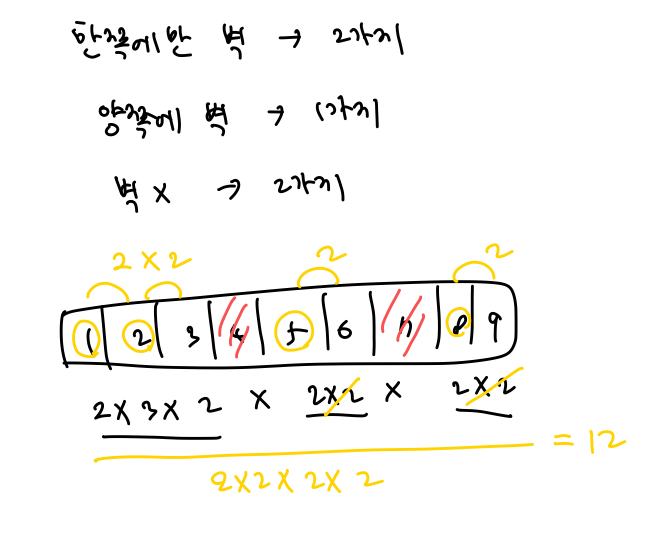 한쪽에만 벽 → 2가지
양쪽에 벽 → 1가지
벽 X → 2가지
2 X 2 2 2
1 2 3 4 5 6 7 8 9
2 X 3 X 2 X 2X2 X 2X2
= 12
2X2X2X2